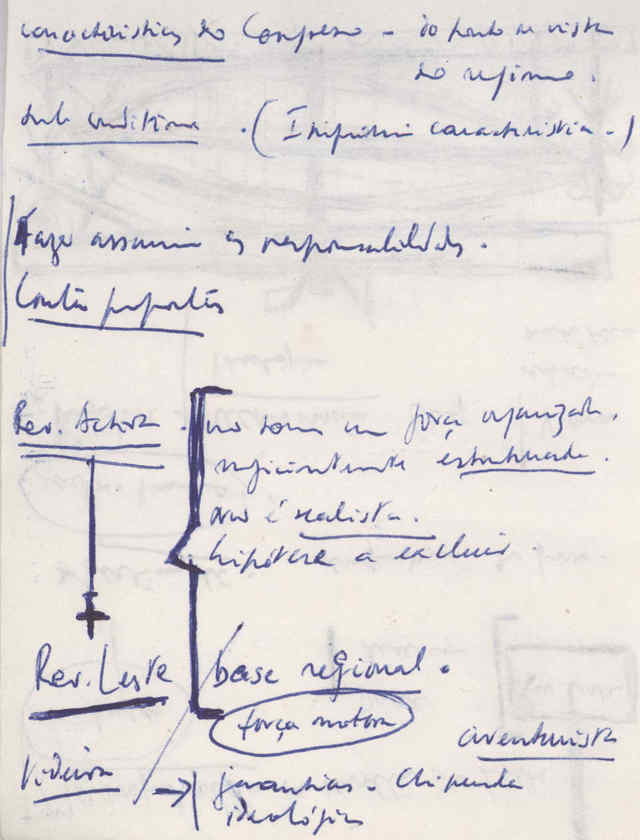 características do Congresso - do ponto de vista
do regime.
sub conditione . ( característica . )
Fazer assumir as responsabilidades.
Contra propostas
Rev. Activa . não somos uma força organizada,
suficientemente estruturada.
não é realista.
hipótese a excluir
+
Rev. Leste base regional.
força motora
aventurista
→ garantias - Chipenda
ideológicas